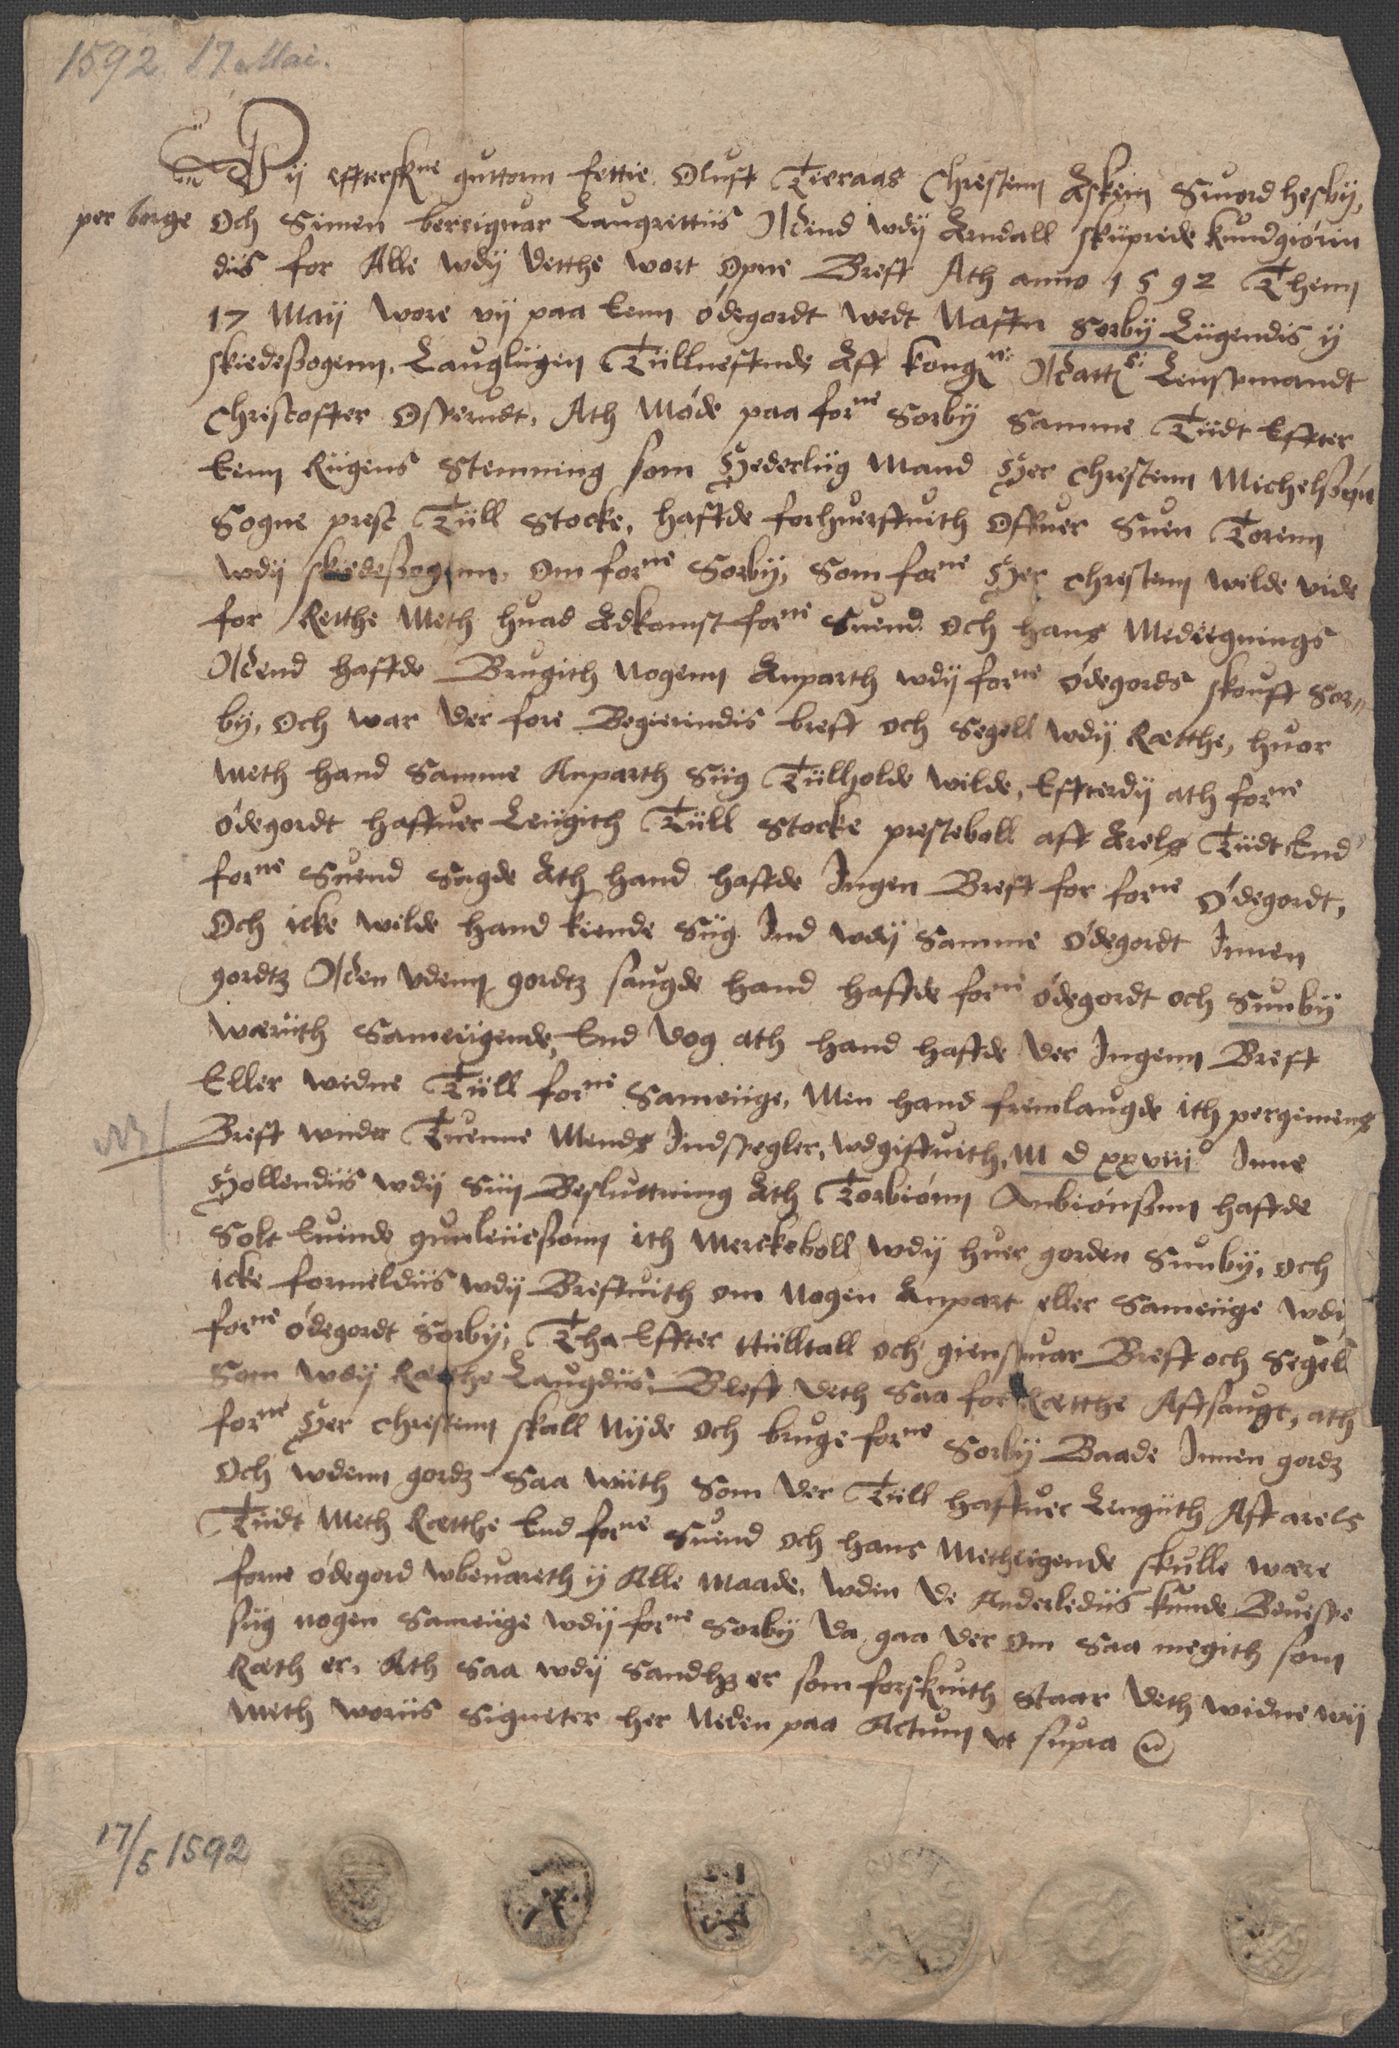 1592 17 Mai.
Wij effterskne guttorm fettie Oluff Tieraas Chrestenn Askeim Siuord hesby,
per borge Och Simen berriguar Laugrettiis Mend wdij Arndall skiiprede kundgiørin
diis for Alle wdij dette wort Opne Breff Ath anno 1592 Thenn
17 Maij wore vij paa Eenn ødegordt wedt Naffn Sørbij Liigendis ij
skiedeßogenn, Lauglügen Tüllneffnde Aff kong: Matt: Lenssmandt
Chrestoffer Osterudt, Ath Møde paa forne Sørbÿ Samme Tiidt Effter
Eenn Riigens Stemning som Hederliig Mand Her Chrestenn Michelßøn
Sogne prest Tiill Stocke, haffde forhuerffuith Offuer Suen Torenn
wdij skiedeßogenn, Om forne Sørby, Som forne Her Chrestenn wilde vide
for Retthe Meth huad Adkomst forne Suend Och hans Medeignings
Mend haffde Brugith Nogenn Anparth wdij forne ødegords skouff Sør
by, Och war der fore Begierindis breff Och Segell wdij Rætthe, huor
meth hand Samme Anparth Siig Tiilholde wilde, Effterdij ath forne
ødegordt haffuer Leiigith Tiill Stocke presteboll aff Arels Tiidt, End
forne Suend Sagde Ath hand haffde Ingen Breff for forne Ødegordt,
Och icke wilde hand kiende Siig Ind wdij Samme Ødegordt Innen
gordtz Men vdenn gordtz saugde hand haffde forne ødegordt och Sunbÿ
wæriith Sameiigende, End dog ath hand haffde der Ingenn Breff
Eller widne Tiill forne Sameiige, Men hand fremlaugde ith pergemens
Breff wnder Tuenne Mends Indsegler, wdgiffuith, M D xxviii° Inne
Hollendiis wdij Siin Besluttning Ath Torbiønn Anbiønßenn haffde
Solt Euinde gunleiießønn ith Merckeboll wdij huer gorden Sunby, och
icke formeldiis wdij Breffuith om Nogen Anpart eller Sameiige wdi
forne ødegordt Sørbij, Tha Effter tiilltall och giensuar Breff och Segell
Som wdij Rætthe Laugdiis, Bleff deth Saa for Rætthe Affsaugt, ath
forne Her Chrestenn skall Nyde Och bruge forne Sørbij Baade Innen gordz
Och wdenn gordz Saa wiith Som der Tiill haffuer Leigiith Aff arels
Tiidt Meth Rætthe End forne Suend och hans Metheigende skulle wære
forne ødegord wbeuareth ij Alle Maade, wden de Anderlediis kunde Beuisse
siig nogen Sameiige wdij forne Sørbij da gaa der om Saa megith som
Ræth er, Ath Saa wdij Sandhed er som forskrith Staar deth widne wij
Meth woriis Signeter her Neden paa Actum vt supra
17/5 1592